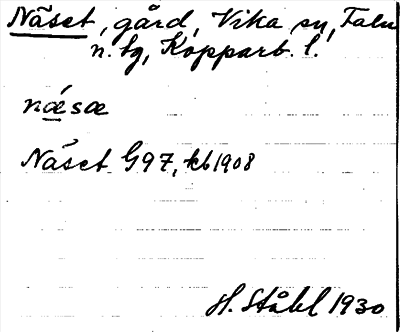 Näset, gård, Vika sn, Falu
n. tg, Kopparb. l.
næ´sæ
Näset G97, kb 1908
H. Ståhl 1930